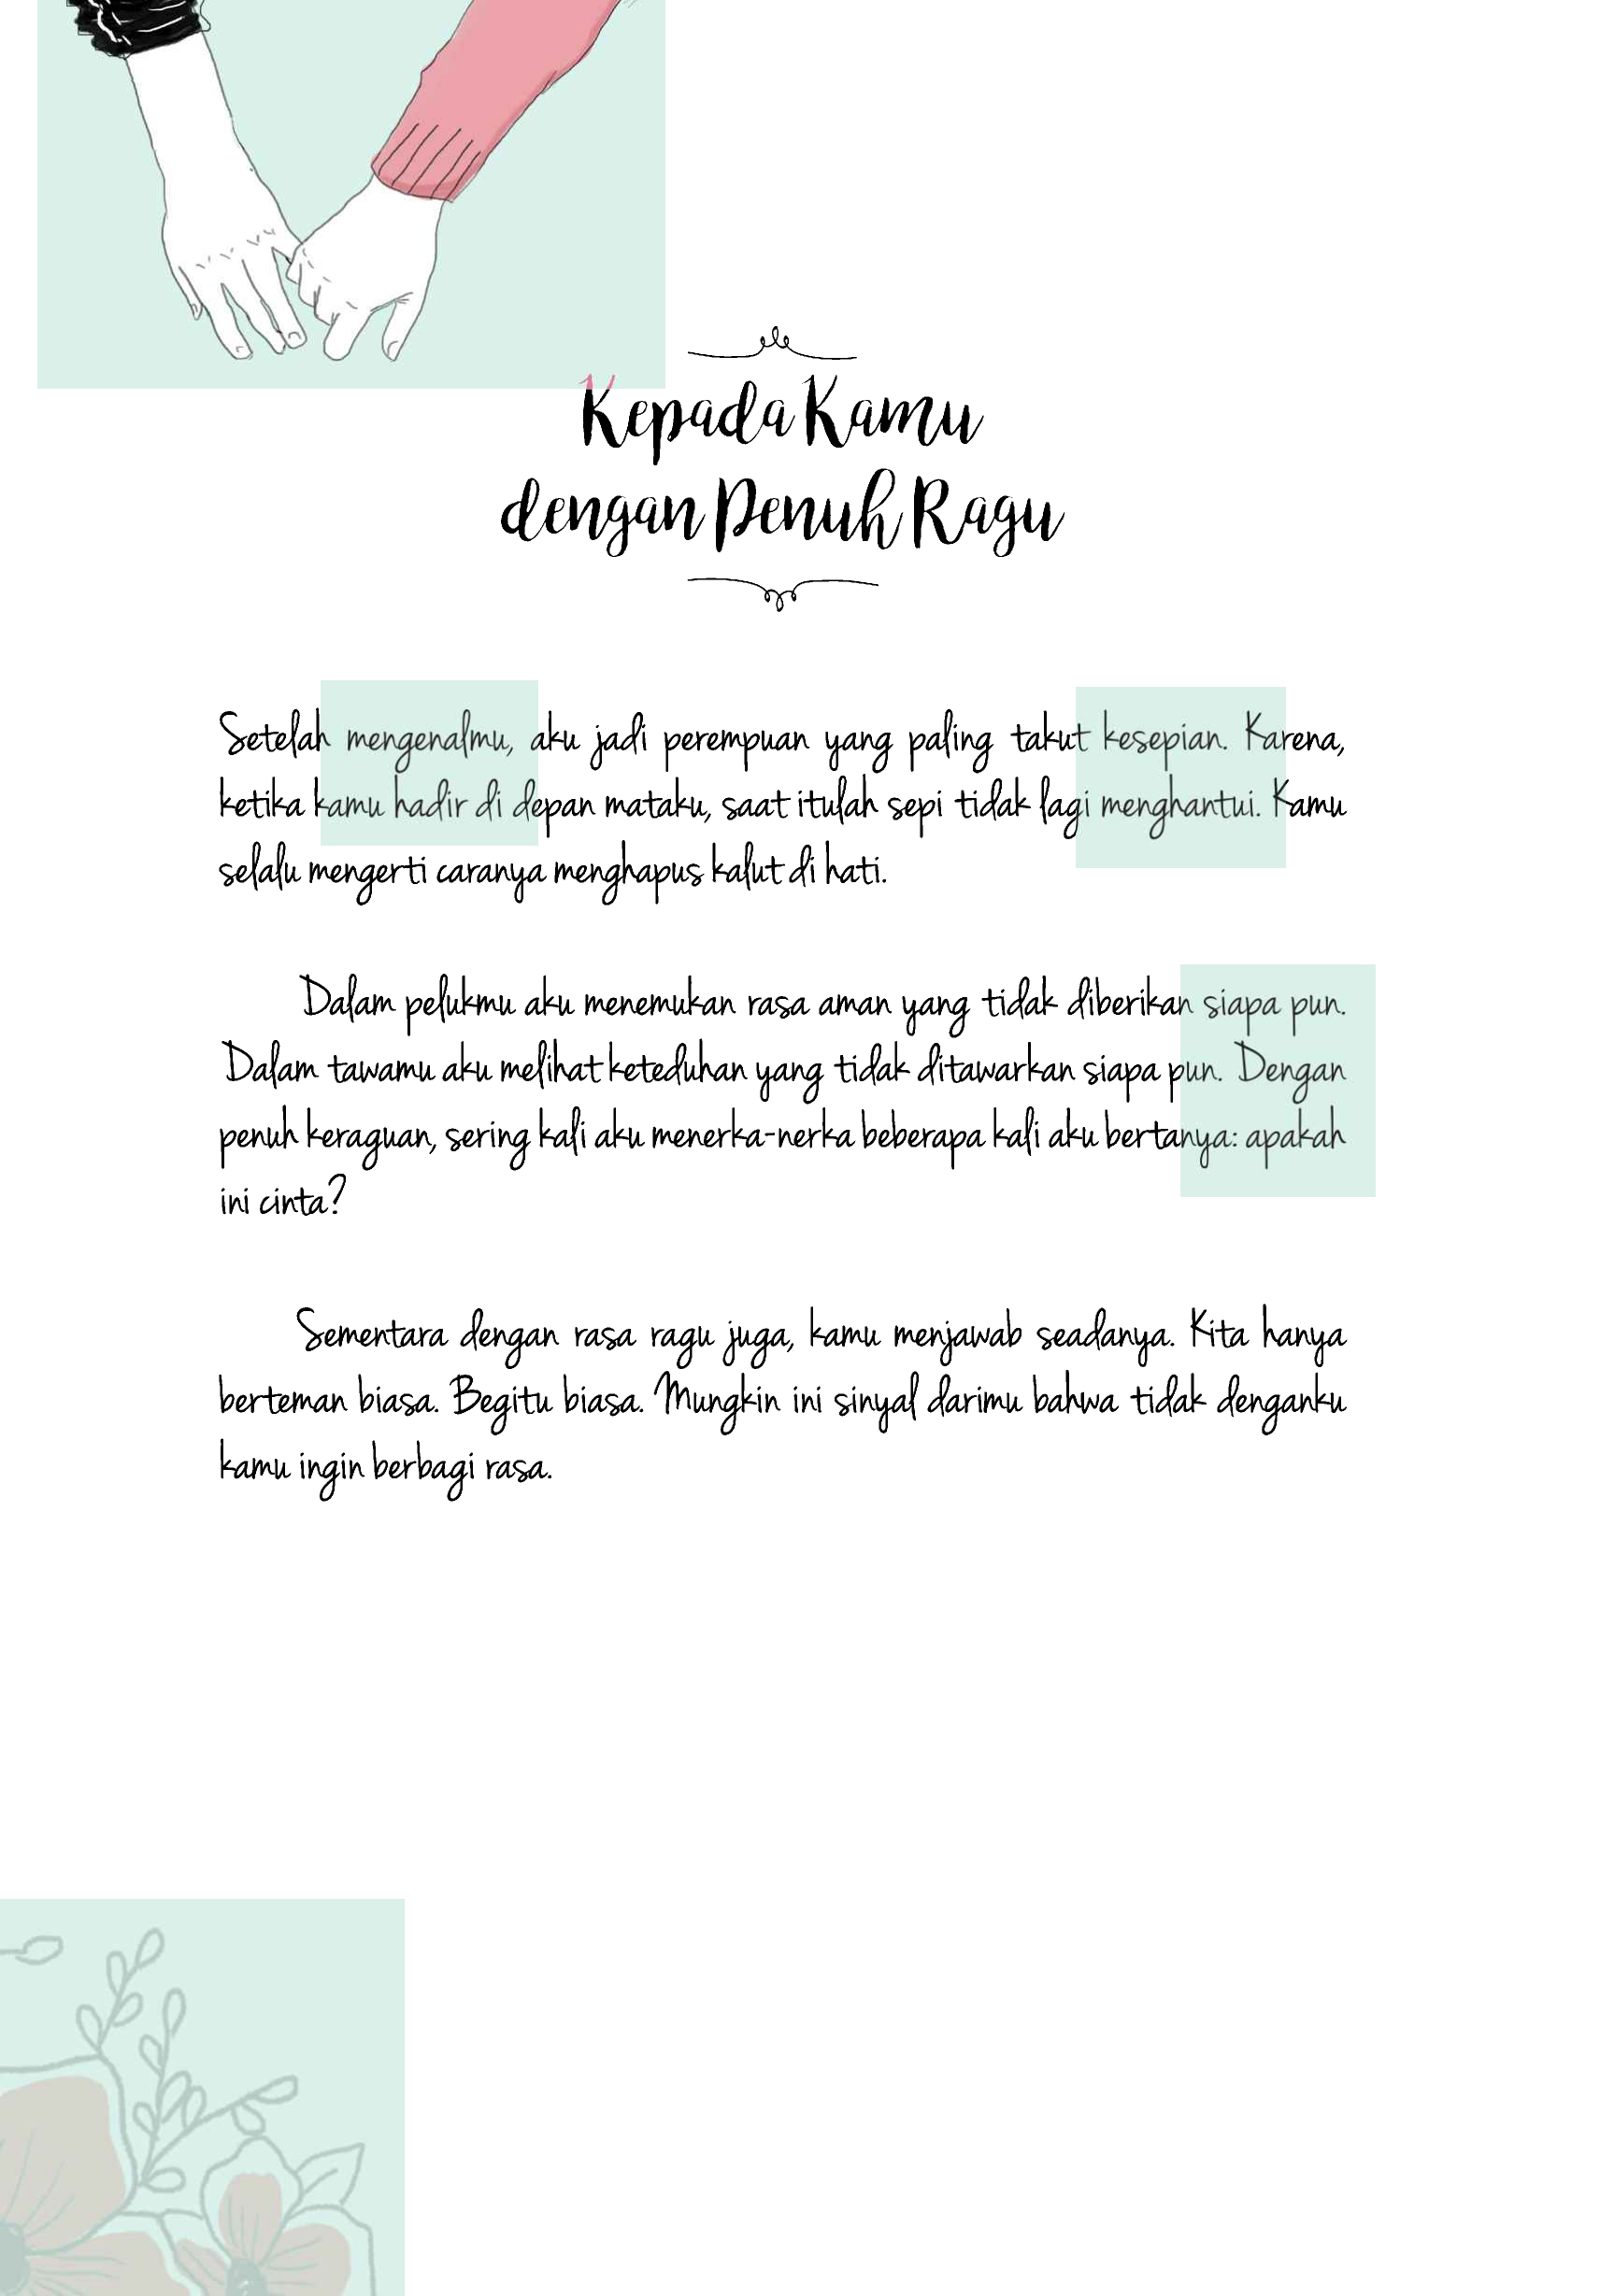 Kepada Kamu
dengan Penuh Ragu
Setelah mengenalmu, aku jadi perempuan yang paling takut kesepian. Karena,
ketika kamu hadir di depan mataku, saat itulah sepi tidak lagi menghantui. Kamu
selalu mengerti caranya menghapus kalut di hati.
Dalam pelukmu aku menemukan rasa aman yang tidak diberikan siapa pun.
Dalam tawamu aku melihat keteduhan yang tidak ditawarkan siapa pun. Dengan
penuh keraguan, sering kali aku menerka-nerka beberapa kali aku bertanya: apakah
ini cinta?
Sementara dengan rasa ragu juga, kamu menjawab seadanya. Kita hanya
berteman biasa. Begitu biasa. Mungkin ini sinyal darimu bahwa tidak denganku
kamu ingin berbagi rasa.